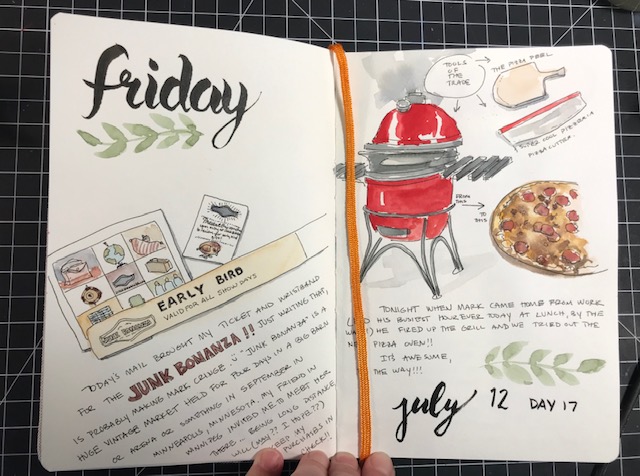 friday
EARLY BIRD
VALID FOR ALL SHOW DAYS
JUNK BONANZA
TODAY'S MAIL BROUGHT MY TICKET AND WRISTBAND
FOR THE JUNK BONANZA!! JUST WRITING THAT,
IS PROBABLY MAKING MARK CRINGE! "JUNK BONANZA" IS A
HUGE VINTAGE MARKET HELD FOR FOUR DAYS IN A BIG BARN
OR ARENA OR SOMETHING IN SEPTEMBER IN
MINNEAPOLIS, MINNESOTA. MY FRIEND IN
WINNIPEG INVITED ME TO MEET HER
THERE – BEING LONG DISTANCE
WILL (MAY? I HOPE??)
KEEP MY
PURCHASES IN
CHECK!!
TOOLS
OF
THE
TRADE
THE PIZZA PEEL
SUPER COOL
PIZZA CUTTER
FROM
THIS
TO
THIS
TONIGHT WHEN MARK CAME HOME FROM WORK
HIS BUSIEST HOUR EVER TODAY AT LUNCH, BY THE
WAY!) HE FIRED UP THE GRILL AND WE TRIED OUT THE
PIZZA OVEN!!
IT'S AWESOME,
THE WAY!!!
july 12 DAY 17